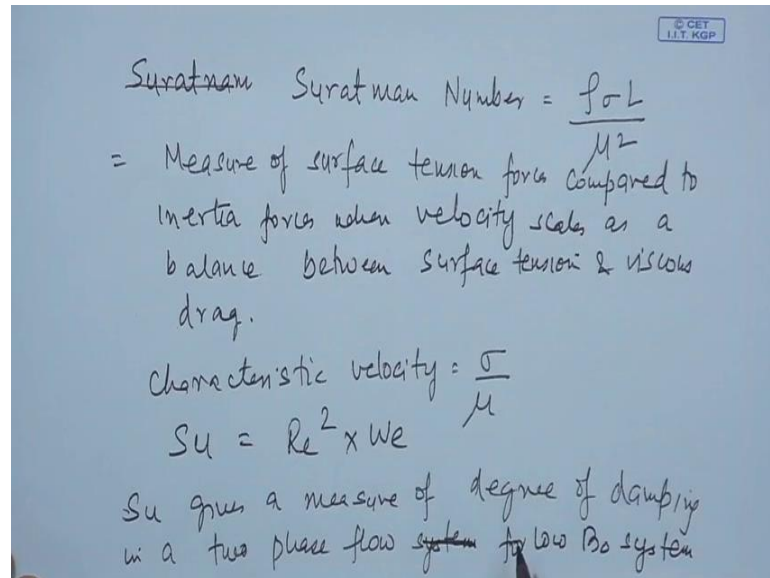 © CET
I.I.T. KGP
Suratnam Suratman Number = ρσL / μ2
= Measure of surface tension forces compared to
inertia forces when velocity scales as a
balance between surface tension & viscous
drag.
Characteristic velocity = σ / μ
Su = Re² x We
Su gives a measure of degree of damping
in a two phase flow system for low Bo system